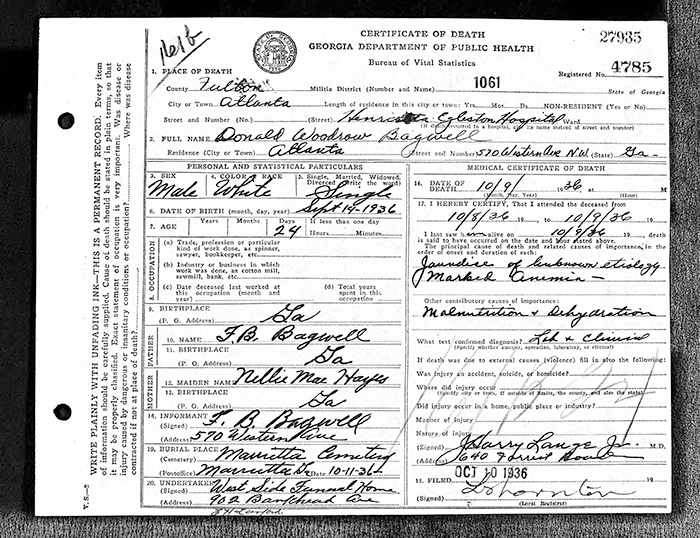 Relb
CERTIFICATE OF DEATH
GEORGIA DEPARTMENT OF PUBLIC HEALTH
Bureau of Vital Statistics
27935
Registered No. 4785
1. PLACE OF DEATH
County Fulton Militia District (Number and Name) 1061 State of Georgia
City or Town Atlanta Length of residence in this city or town: Yrs. Mos. Ds. NON-RESIDENT (Yes or No)
Street and Number (No.) (Street) Henrietta Egleston Hospital Ward
(If death occurred in a hospital, give its name instead of street and number)
2. FULL NAME Donald Woodrow Bagwell
Residence (City or Town) Atlanta Street and Number 570 Western Ave N.W. (State) Ga-
PERSONAL AND STATISTICAL PARTICULARS
3. SEX Male
4. COLOR or RACE White
5. Single, Married, Widowed, Divorced (write the word) Single
6. DATE OF BIRTH (month, day, year) Sept 14-1936
7. AGE Years Months Days 24 If less than one day Hours Minutes
8. OCCUPATION
(a) Trade, profession or particular kind of work done, as spinner, sawyer, bookkeeper, etc.
(b) Industry or business in which work was done, as cotton mill, sawmill, bank, etc.
(c) Date deceased last worked at this occupation (month and year)
(d) Total years spent in this occupation
9. BIRTHPLACE (P. O. Address) Ga
FATHER
10. NAME F.B. Bagwell
11. BIRTHPLACE (P. O. Address) Ga
MOTHER
12. MAIDEN NAME Nellie Mae Hayes
13. BIRTHPLACE (P. O. Address) Ga
18. INFORMANT (Signed) F. B. Bagwell
(Address) 570 Western Ave
19. BURIAL PLACE (Cemetery) Marrietta Cemetery
(Postoffice) Marrietta Ga Date 10-11-36-
20. UNDERTAKER (Signed) West Side Funeral Home
(Address) 902 Bankhead Ave
MEDICAL CERTIFICATE OF DEATH
16. DATE OF DEATH 10/9/ 36 (Month, Day, Year) at (Hour) M
17. I HEREBY CERTIFY, That I attended the deceased from
10/8/36 19 to 10/9/36 19
I last saw him alive on 10/9/36 19 death
is said to have occurred on the date and hour stated above.
The principal cause of death and related causes of importance, in the order of onset and duration of each:
Jaundice of Unknown etiology
Marked Anemia -
Other contributory causes of importance:
Malnutrition & Dehydration
What test confirmed diagnosis? Lab & Clinical
(Specify whether autopsy, operation, laboratory, or clinical)
If death was due to external causes (violence) fill in also the following:
Was injury an accident, suicide, or homicide?
Where did injury occur
(Specify city or town, if outside of limits, the county, and also the state)
Did injury occur in a home, public place or industry?
Manner of injury
Nature of injury
(Signed) J Harry Lange Jr. M.D.
(Address) 640 Forrest Road
OCT 10 1936
15. FILED 19
(Signed) L Thornton
(Local Registrar)
V. S.—2
WRITE PLAINLY WITH UNFADING INK—THIS IS A PERMANENT RECORD. Every item
of information should be carefully supplied. Cause of death should be stated in plain terms, so that
it may be properly classified. Exact statement of occupation is very important. Was disease or
injury caused by dangerous or insanitary conditions or occupation? Where was disease
contracted if not at place of death?